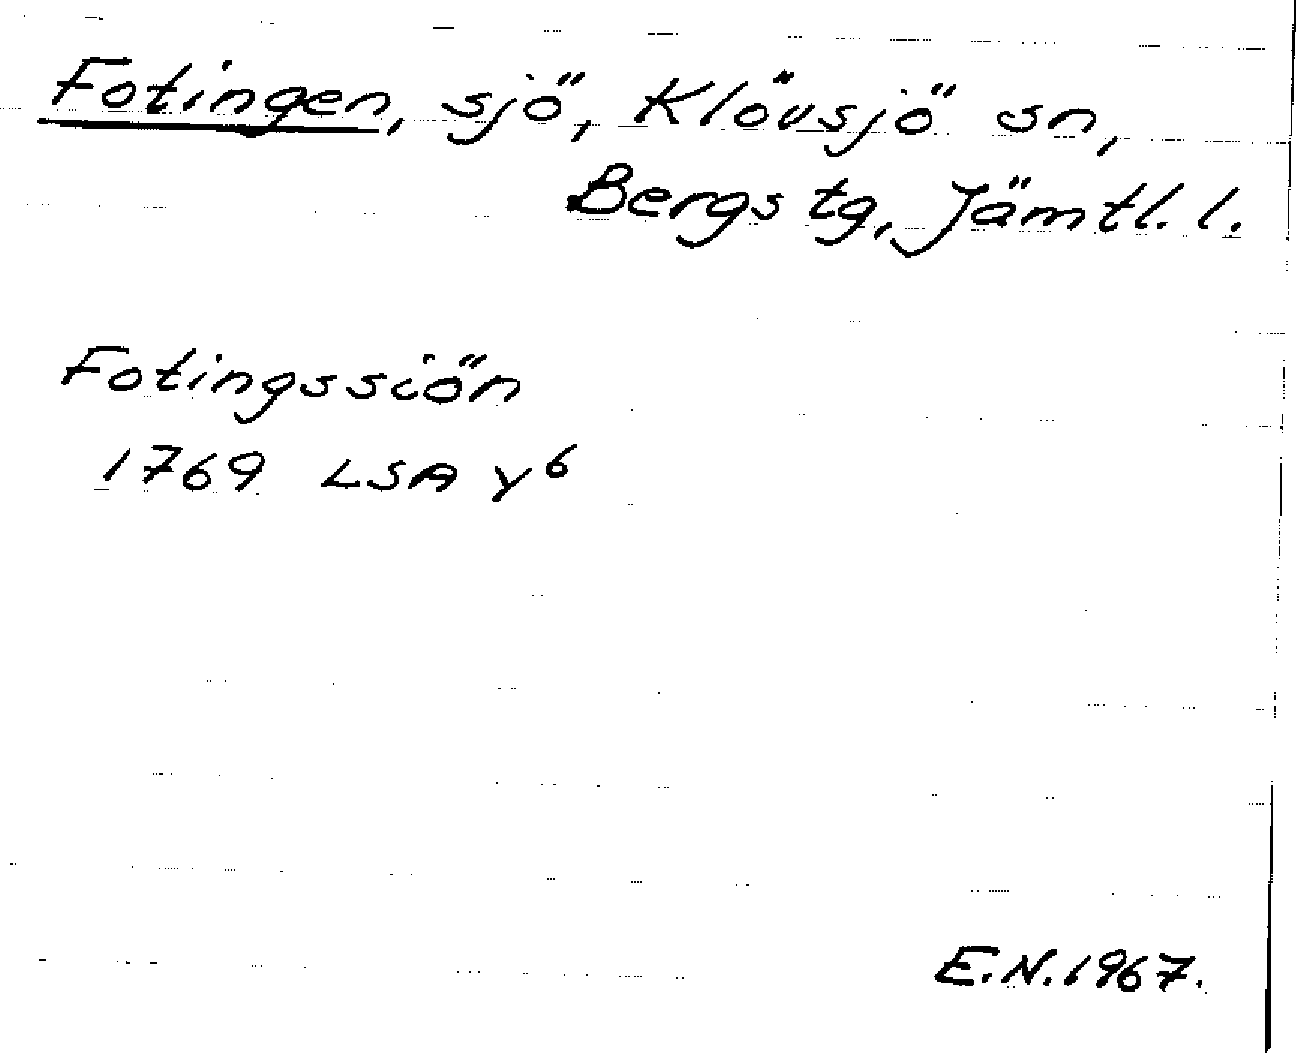 Fotingen, sjö, Klövsjö sn,
Bergs tg, Jämtl. l.
Fotingssiön
1769 LSA Y6
E.N. 1967.